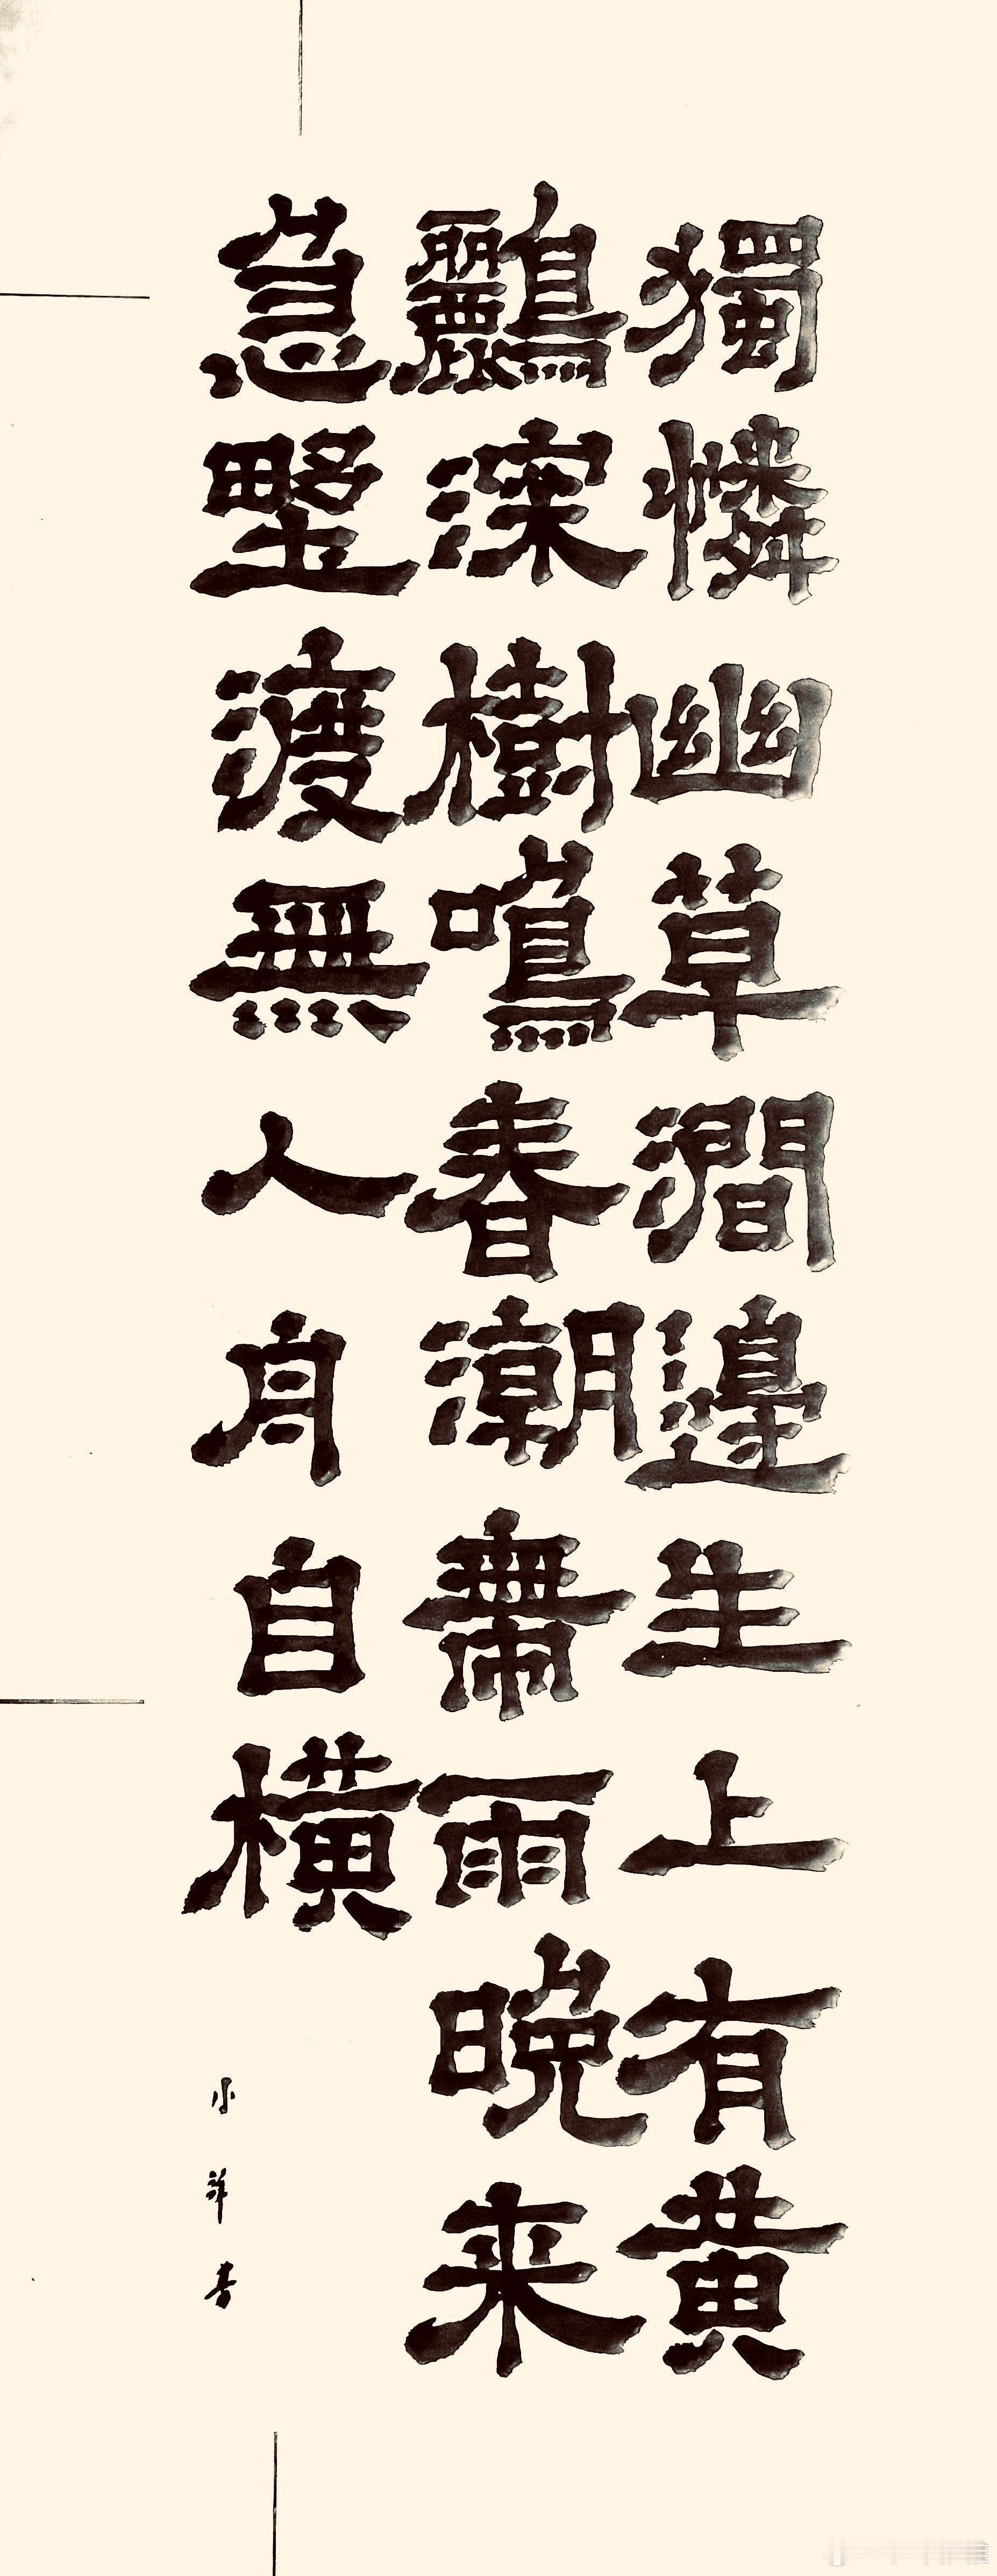 獨憐幽草澗邊生上有黄
鸝深樹鳴春潮帶雨晚来
急野渡無人舟自横
小 書